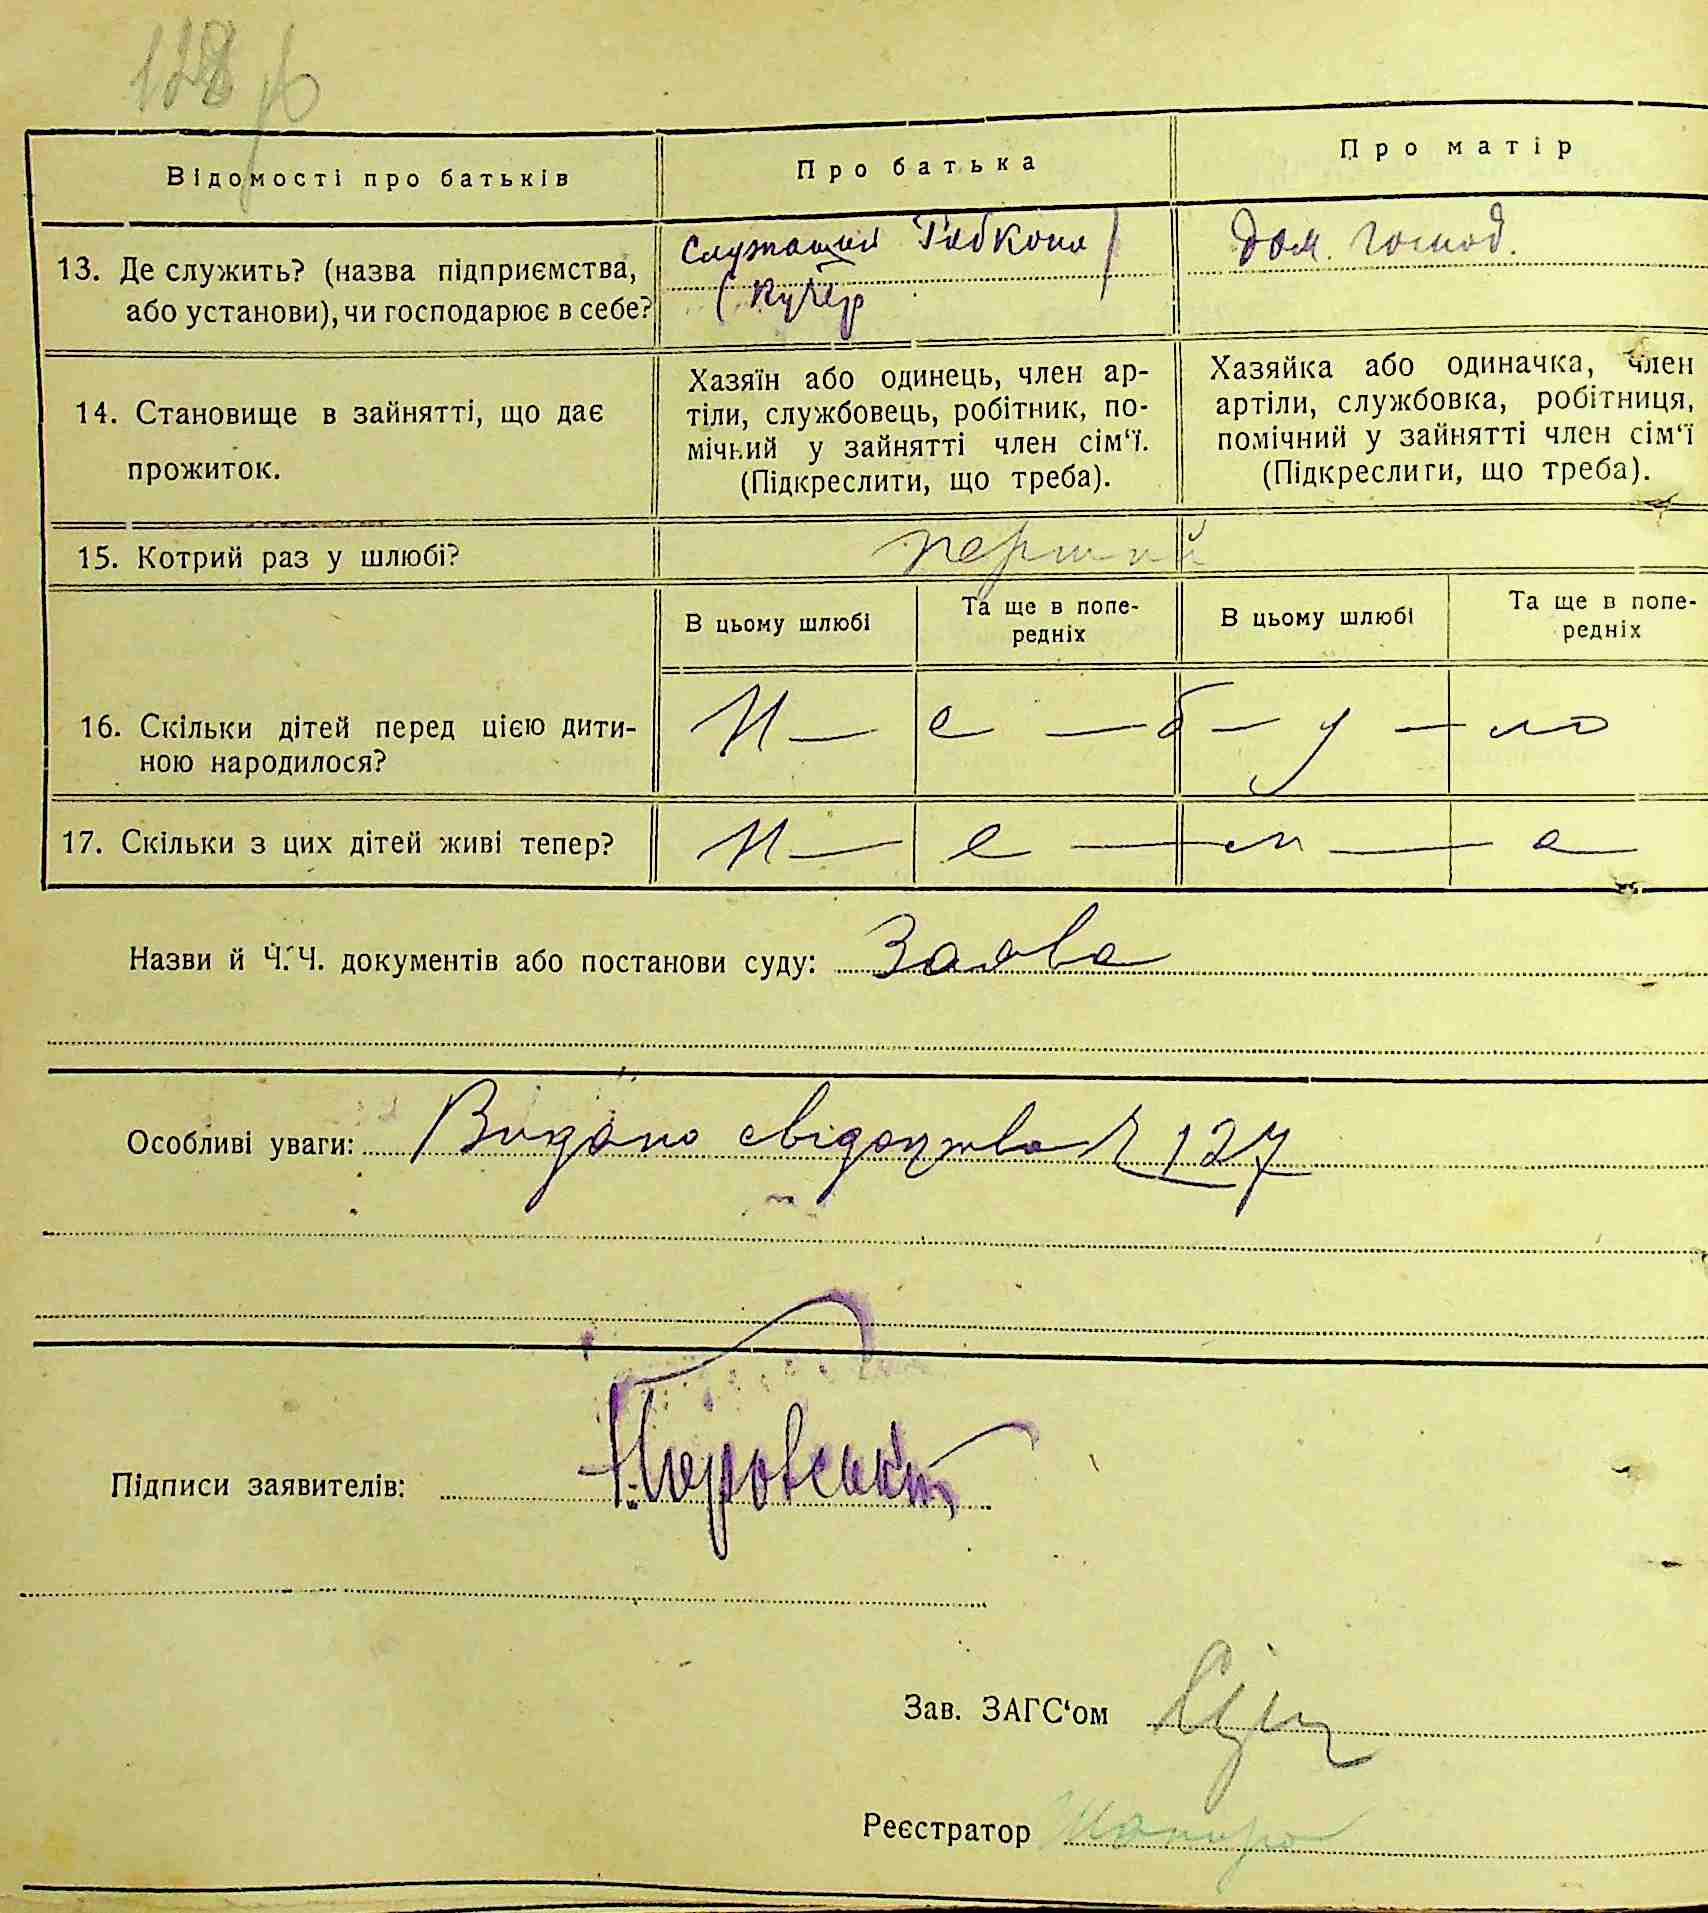 128
Відомості про батьків
Про батька
Про матір
13. Де служить? (назва підприємства,
або установи), чи господарює в себе?
Служащий
(Кучер)
дом. господ.
14. Становище в зайнятті, що дає
прожиток.
Хазяїн або одинець, член ар-
тіли, службовець, робітник, по-
мічний у зайнятті член сім‘ї.
(Підкреслити, що треба).
Хазяйка або одиначка, член
артіли, службовка, робітниця,
помічний у зайнятті член сім‘ї
(Підкреслити, що треба).
15. Котрий раз у шлюбі?
перший
В цьому шлюбі
Та ще в попе-
редніх
В цьому шлюбі
Та ще в попе-
редніх
16. Скільки дітей перед цією дити-
ною народилося?
Н — е — б — у — ло
17. Скільки з цих дітей живі тепер?
Н — е — м — а
Назви й Ч.Ч. документів або постанови суду: Заява
Особливі уваги: Видано свідоцтво Ч 127
Підписи заявителів:
Зав. ЗАГС‘ом
Реєстратор Шапиро